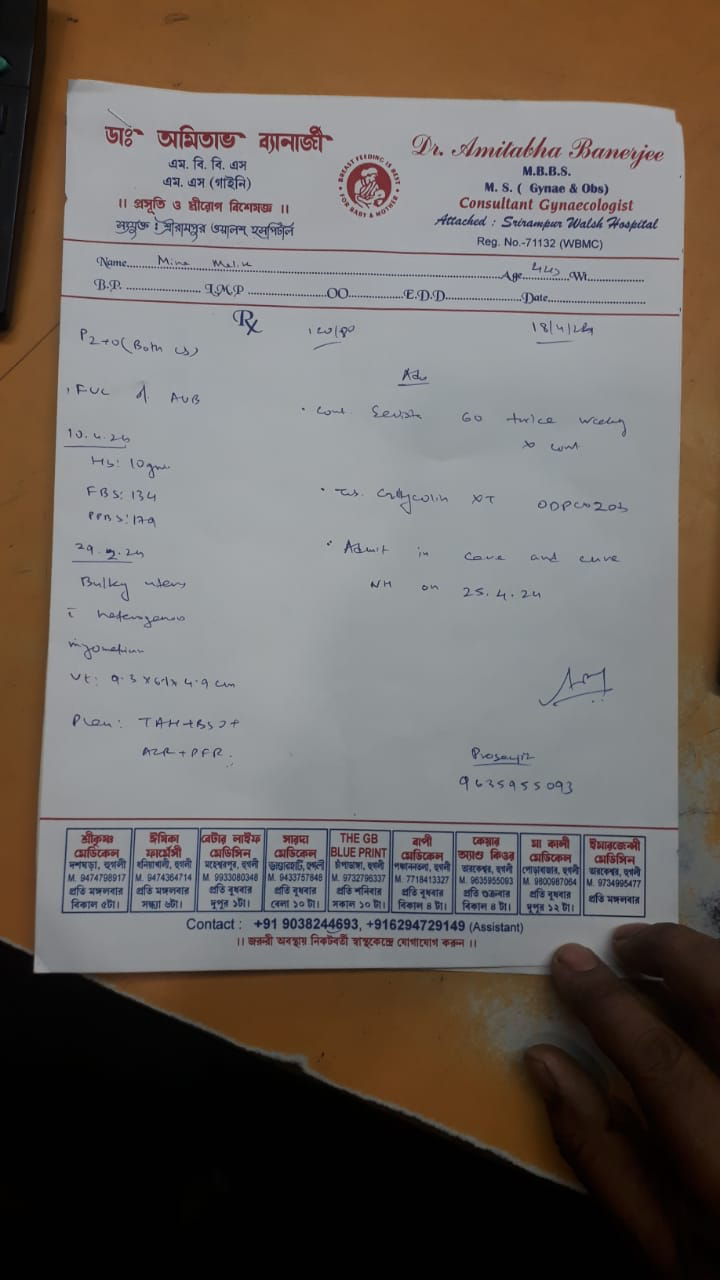 ডাঃ অমিতাভ ব্যানার্জী
এম. বি. বি. এস
এম. এস (গাইনি)
।। প্রসূতি ও স্ত্রীরোগ বিশেষজ্ঞ ।।
সংযুক্ত : শ্রীরামপুর ওয়ালশ হসপিটাল
BREAST FEEDING IS BEST
FOR BABY & MOTHER
Dr. Amitabha Banerjee
M.B.B.S.
M. S. ( Gynae & Obs)
Consultant Gynaecologist
Attached : Srirampur Walsh Hospital
Reg. No.-71132 (WBMC)
Name Mina Malik Age 44 Wt.
B.P. L.M.P OO E.D.D. Date
Rx 120/80 18/4/24
P2+0 (Both
Adv
FUC of AUB
• Cont. 60 twice weekly
x cont
10.4.24
Hb: 10gm
FBS: 134
PPBS: 179
• XT
29.2.24
• Admit in Care and cure
NH on 25.4.24
Bulky uterus
c heterogenous
myometrium
Ut: 9.3 x 6.1 x 4.9 cm
Plan: TAH+BSO+
+ PFR
Prosenjit
9635955093
শ্রীকৃষ্ণ মেডিকেল
দশঘড়া, হুগলী
M. 9474798917
প্রতি মঙ্গলবার
বিকাল ৫টা।
ঈষিকা ফার্মেসী
ধনিয়াখালী, হুগলী
M. 9474364714
প্রতি মঙ্গলবার
সন্ধ্যা ৬টা।
বেটার লাইফ মেডিসিন
মহেশ্বরপুর, হুগলী
M. 9933080348
প্রতি বুধবার
দুপুর ১টা।
সারদা মেডিকেল
হুগলী
M. 9433757848
প্রতি বুধবার
বেলা ১০ টা।
THE GB BLUE PRINT
চাঁপাডাঙ্গা, হুগলী
M. 9732796337
প্রতি শনিবার
সকাল ১০ টা।
বাপী মেডিকেল
হুগলী
M. 7718413327
প্রতি বুধবার
বিকাল ৪ টা।
কেয়ার অ্যাণ্ড কিওর
তারকেশ্বর, হুগলী
M. 9635955093
প্রতি শুক্রবার
বিকাল ৪ টা।
মা কালী মেডিকেল
পোড়াবাজার, হুগলী
M. 9800987064
প্রতি বুধবার
দুপুর ১২ টা।
ইমারজেন্সী মেডিসিন
তারকেশ্বর, হুগলী
M. 9734995477
প্রতি মঙ্গলবার
Contact : +91 9038244693, +916294729149 (Assistant)
।। জরুরী অবস্থায় নিকটবর্তী স্বাস্থ্যকেন্দ্রে যোগাযোগ করুন ।।